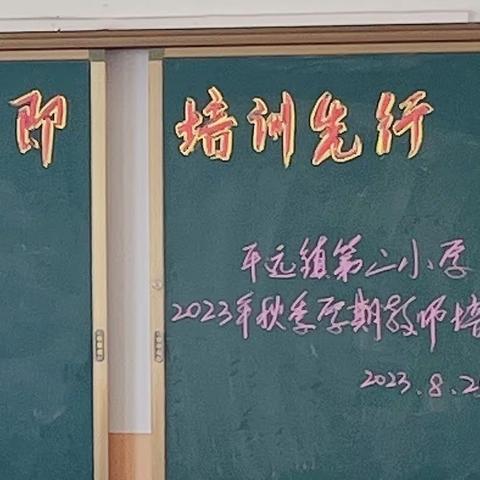 即 培训先行
平远镇第二小学
2023年秋季学期教师培
2023.8.2